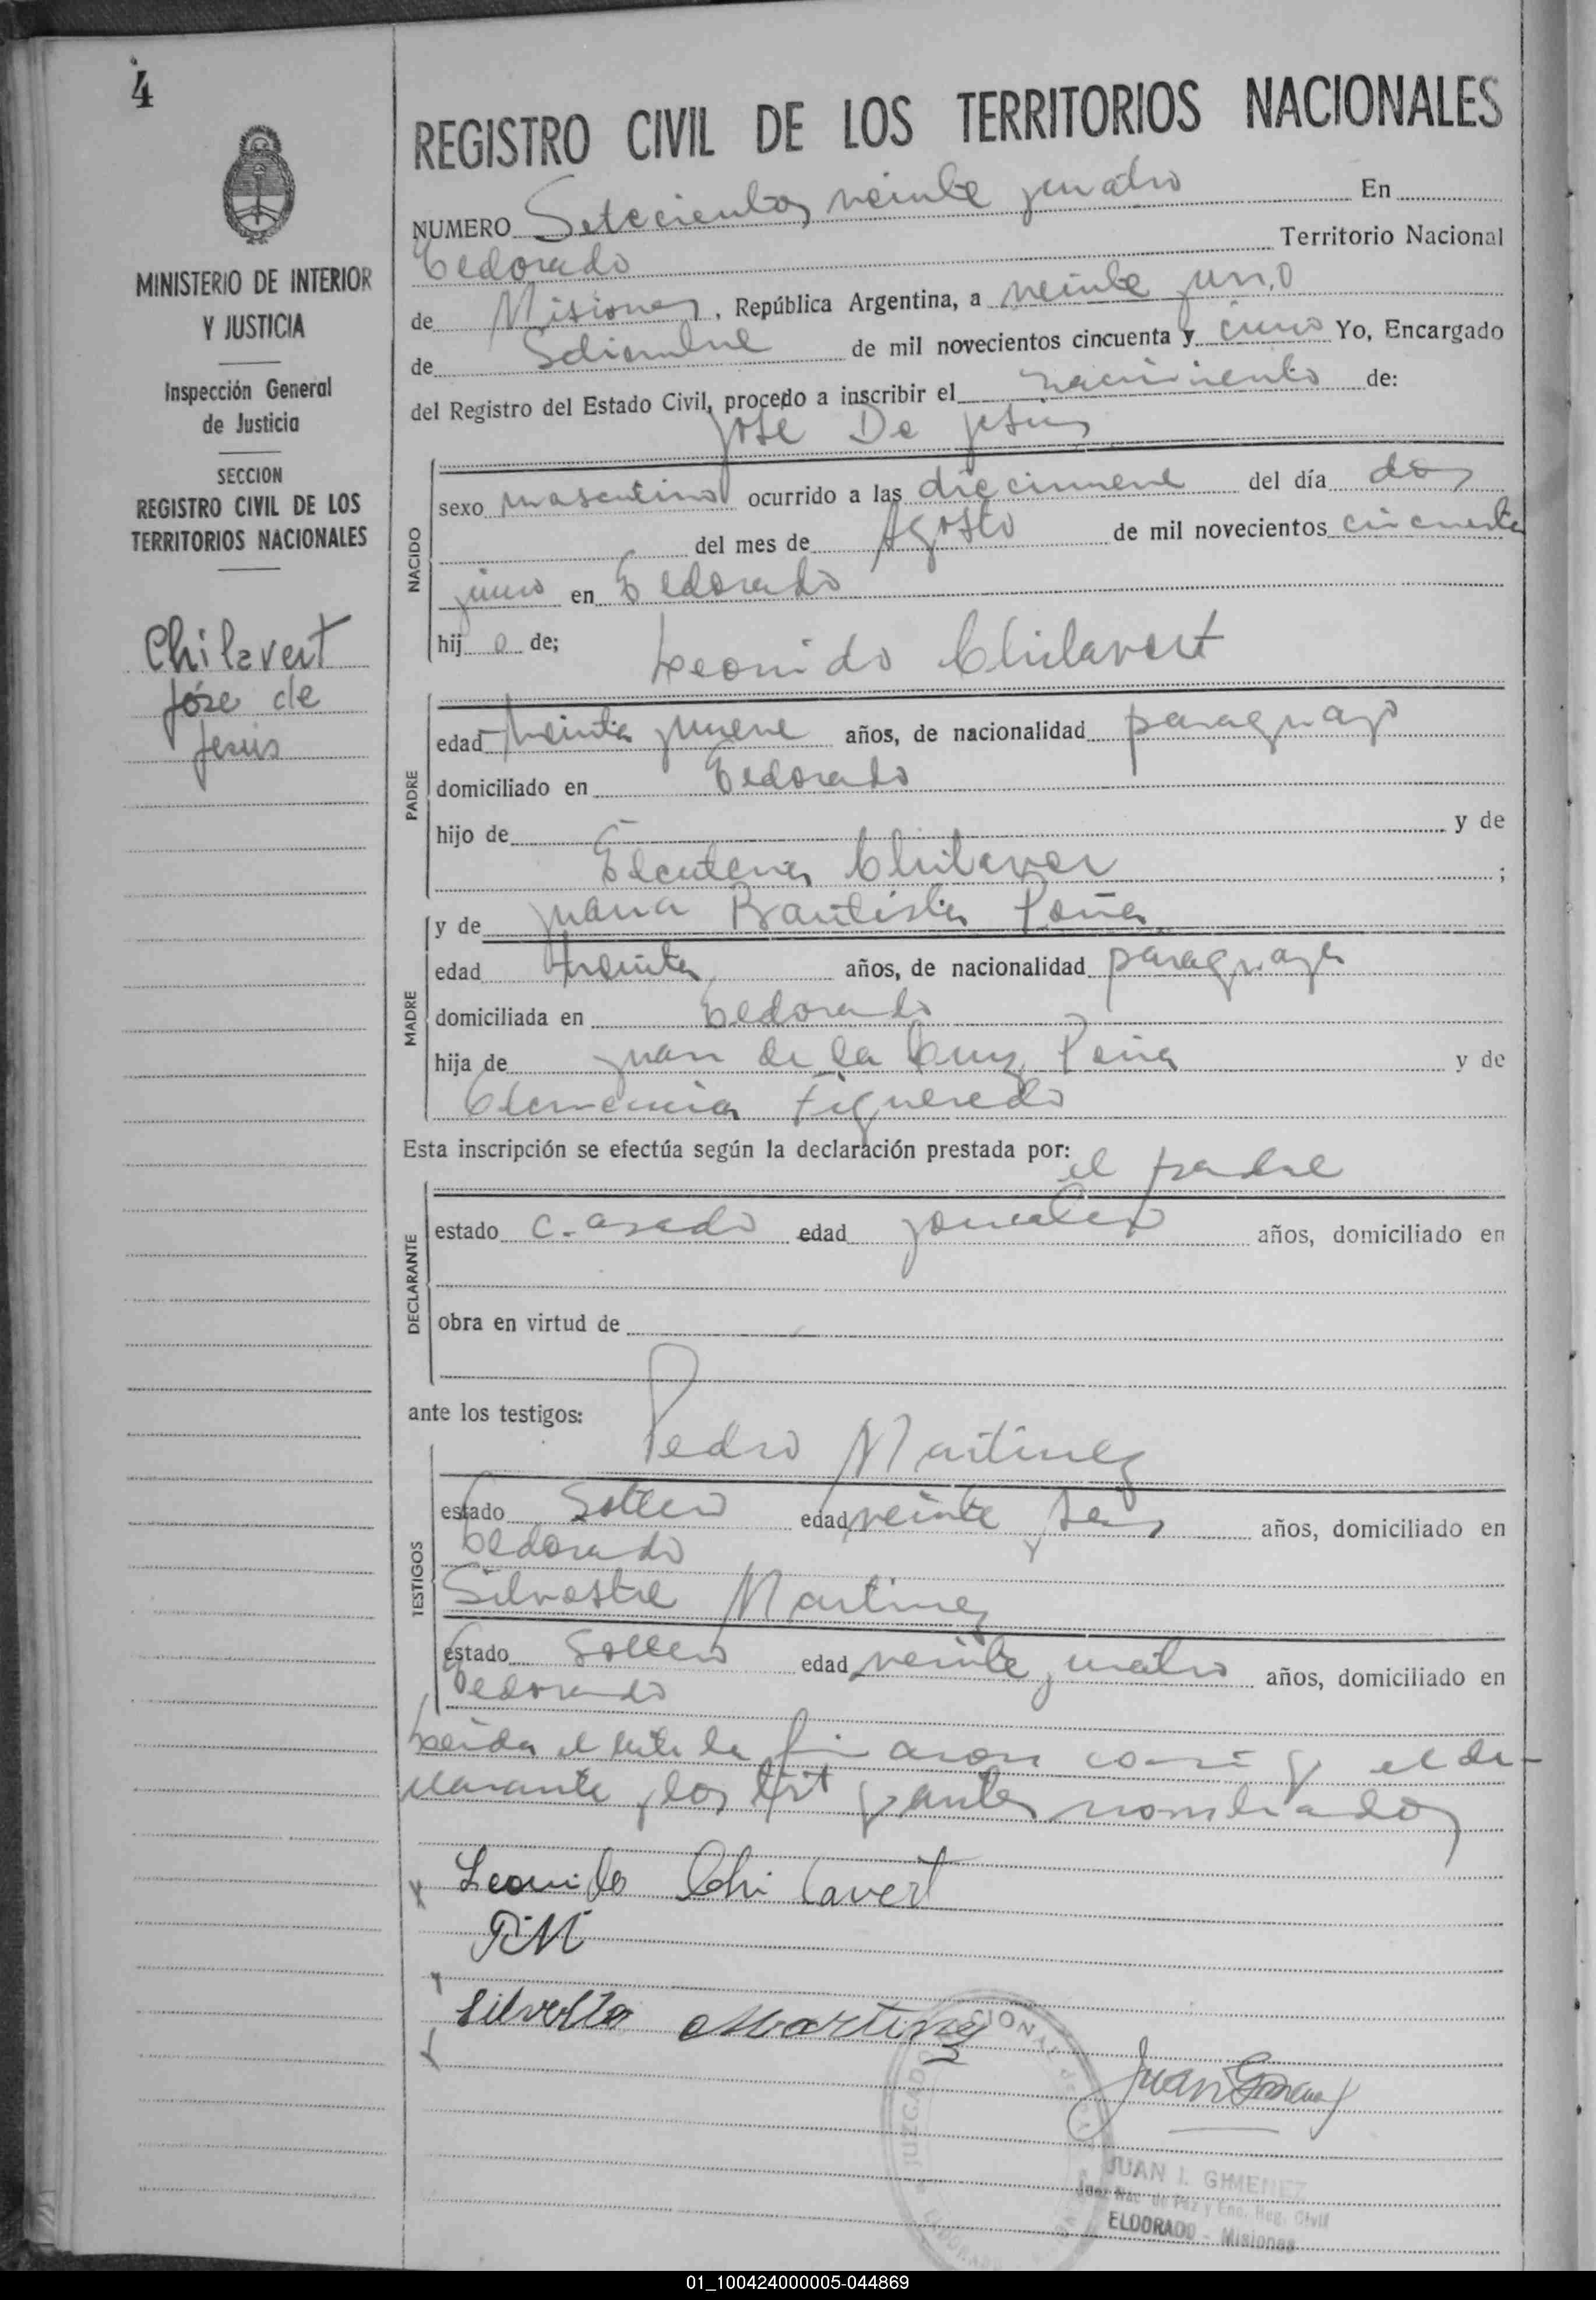 4
REGISTRO CIVIL DE LOS TERRITORIOS NACIONALES
MINISTERIO DE INTERIOR
Y JUSTICIA
Inspección General
de Justicia
SECCION
REGISTRO CIVIL DE LOS
TERRITORIOS NACIONALES
Chilavert
Jose de
Jesús
NUMERO Setecientos veinte ycuatro En
Eldorado Territorio Nacional
de Misiones, República Argentina, a veinte yuno
de Setiembre de mil novecientos cincuenta y cinco Yo, Encargado
del Registro del Estado Civil, procedo a inscribir el nacimiento de:
José De Jesús
NACIDO
sexo masculino ocurrido a las diecinueve del día dos
del mes de Agosto de mil novecientos cincuenta
ycinco en Eldorado
hijo de; Leonido Chilavert
PADRE
edad treinta ynueve años, de nacionalidad paraguayo
domiciliado en Eldorado
hijo de y de
Eleuteria Chilaver ;
y de Juana Bautista Peña
MADRE
edad treinta años, de nacionalidad paraguaya
domiciliada en Eldorado
hija de Juan de la Cruz Peña y de
Clemencia Figueredo
Esta inscripción se efectúa según la declaración prestada por: el padre
DECLARANTE
estado casado edad años, domiciliado en
obra en virtud de
ante los testigos: Pedro Martinez
TESTIGOS
estado Soltero edad veinte y seis años, domiciliado en
Eldorado
Silvestre Martinez
estado Soltero edad veinte ycuatro años, domiciliado en
Eldorado
Leida el acta la firmaron conmigo el de-
clarante ylos test antes nombrados
Leonido Chilavert
P.M
Silvestre Martinez
Juan Gimenez
JUAN I. GIMENEZ
Juez Nac. de Paz y Enc. Reg. Civil
ELDORADO - Misiones
01_100424000005-044869